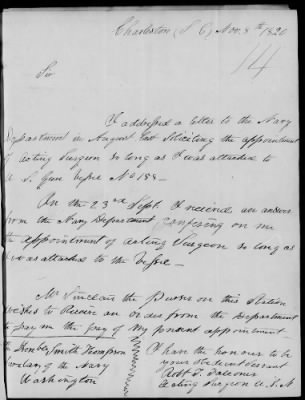 Charleston (S C) Nov. 8th 1820
14
Sir
I addressed a letter to the Navy
Department in August last Soliciting the appointment
of acting Surgeon so long as I was attached to
U. S. Gun Vessel No 158 -
On the 23rd Sept. I received an answer
from the Navy Department confering on me
the appointment of acting Surgeon so long as
I was attached to the Vessel -
Mr Sinclair the Purser on this Station
wishes to Receive an order from the Department
to pay me the pay of my present appointment
the Honble Smith Thompson
Secretary of the Navy
Washington
I have the honour to be
your Obedient Servant
Robt F.
Acting Surgeon U. S. N